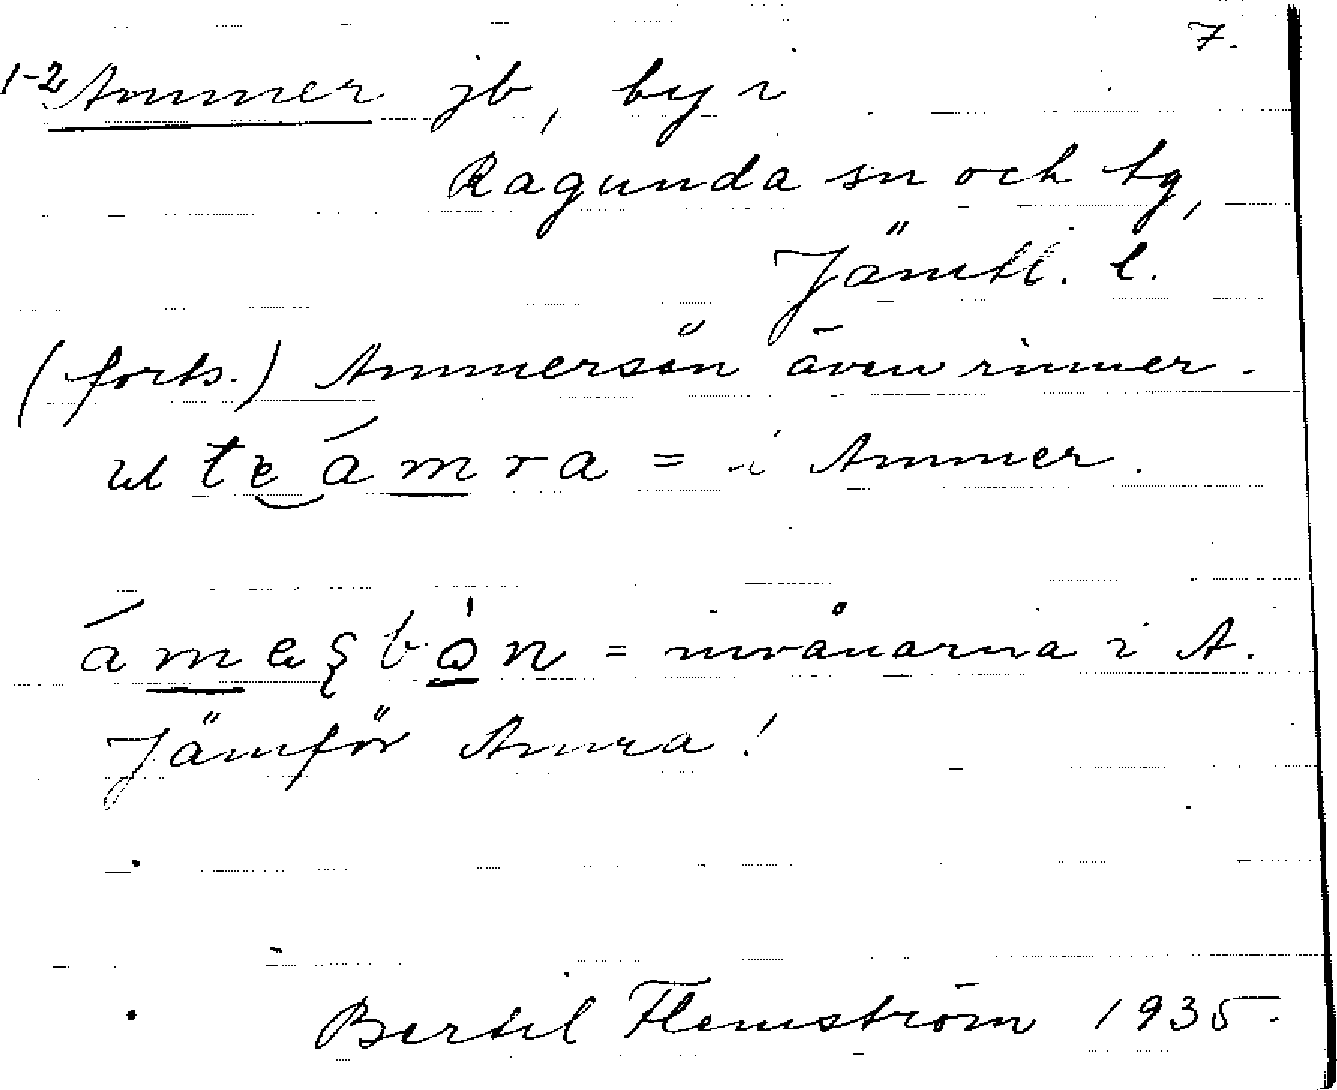 7.
1-2 Ammer jb, by i
Ragunda sn och tg,
Jämtl. l.
(forts.) Ammersön även rinner.
ut te ámra = i Ammer.
ámaʂbòn = invånarna i A.
Jämför Amra!
Bertil Flemström 1935.